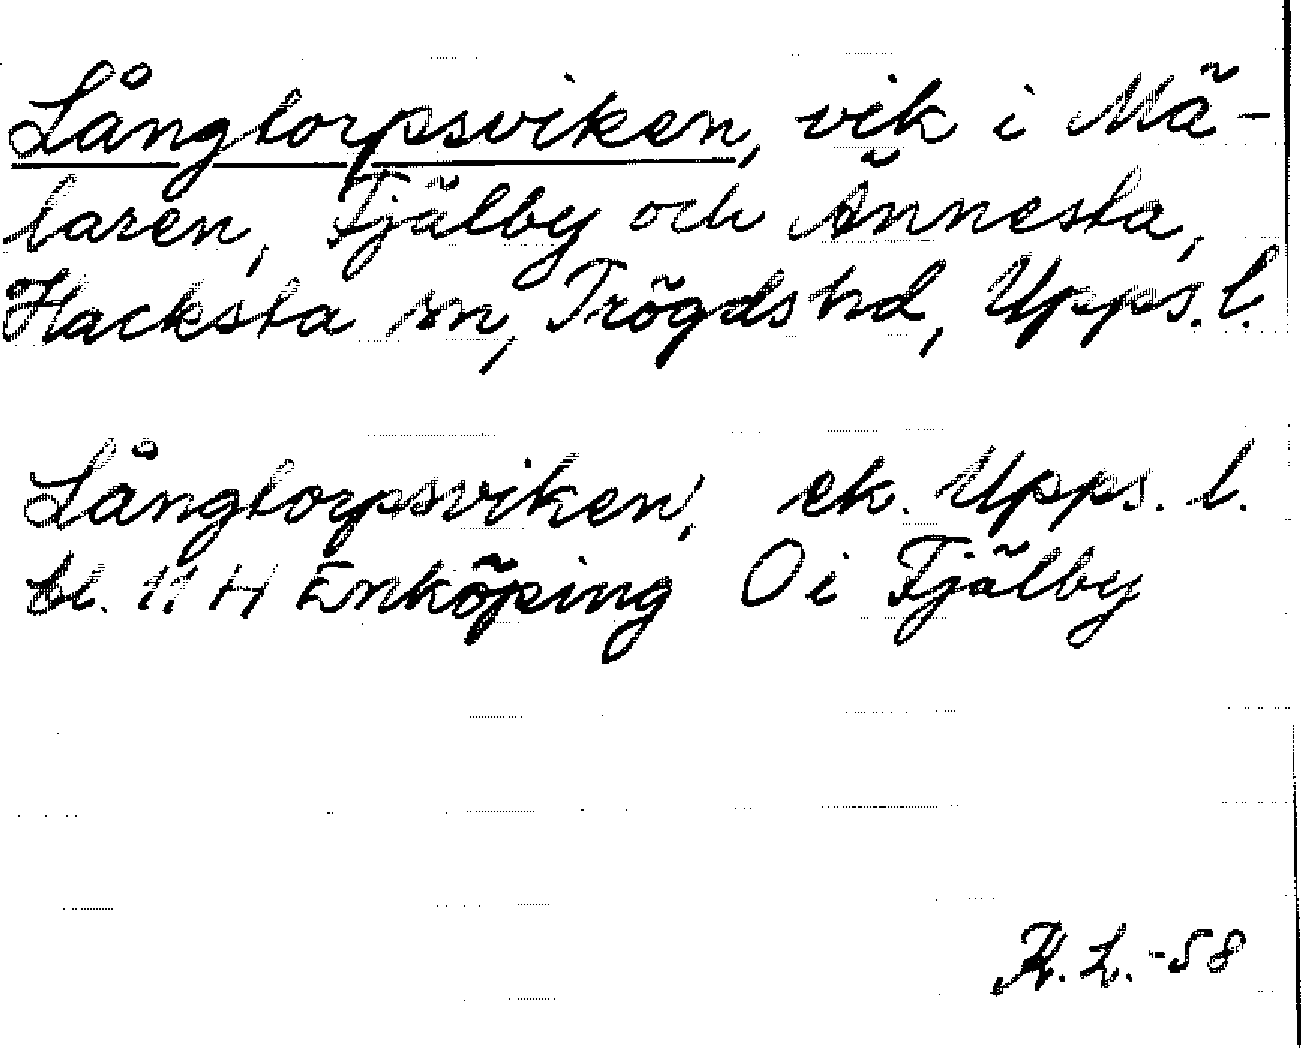 Långtorpsviken, vik i Mä-
laren, Fjälby och Ännesta,
Hacksta sn, Trögds hd, Upps. l.
Långtorpsviken, ek. Upps. l.
bl. 11 H Enköping O i Fjälby
K. L. -58